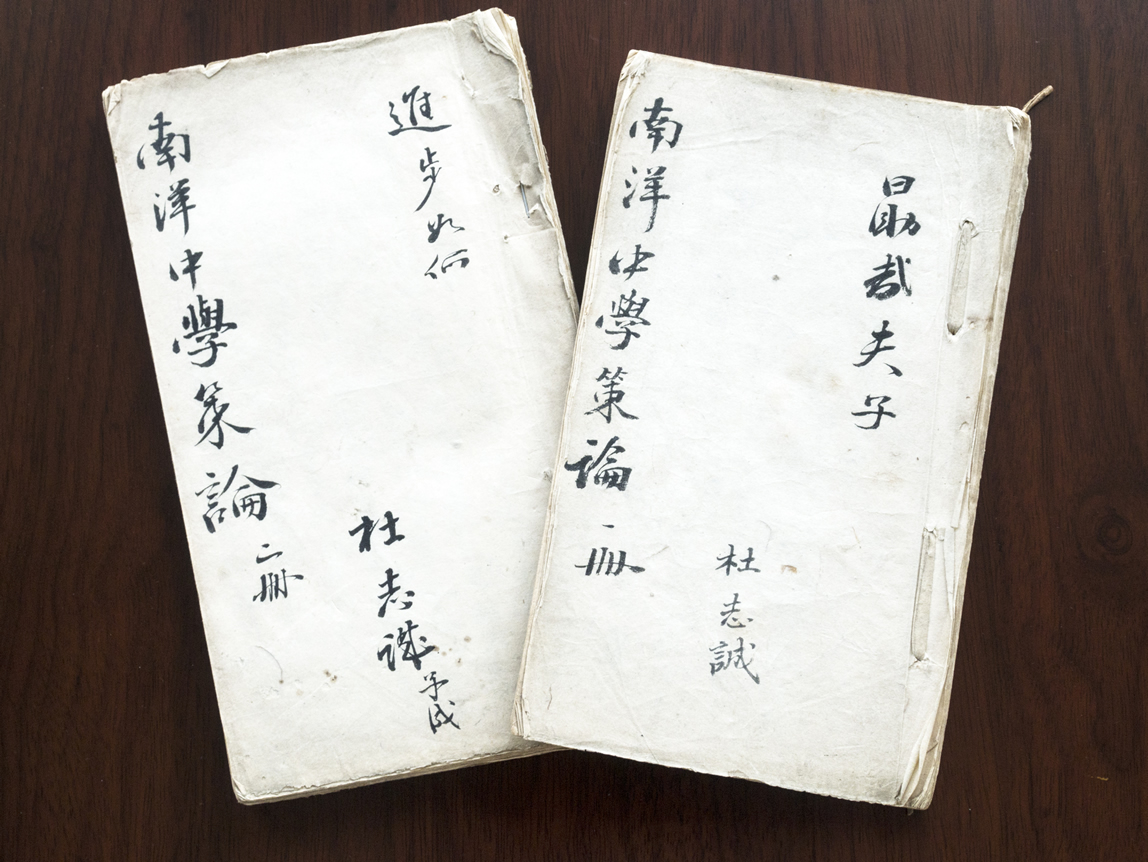 進步如何
杜志誠
南洋中學策論 二冊
勗哉夫子
杜志誠
南洋中學策論 一冊